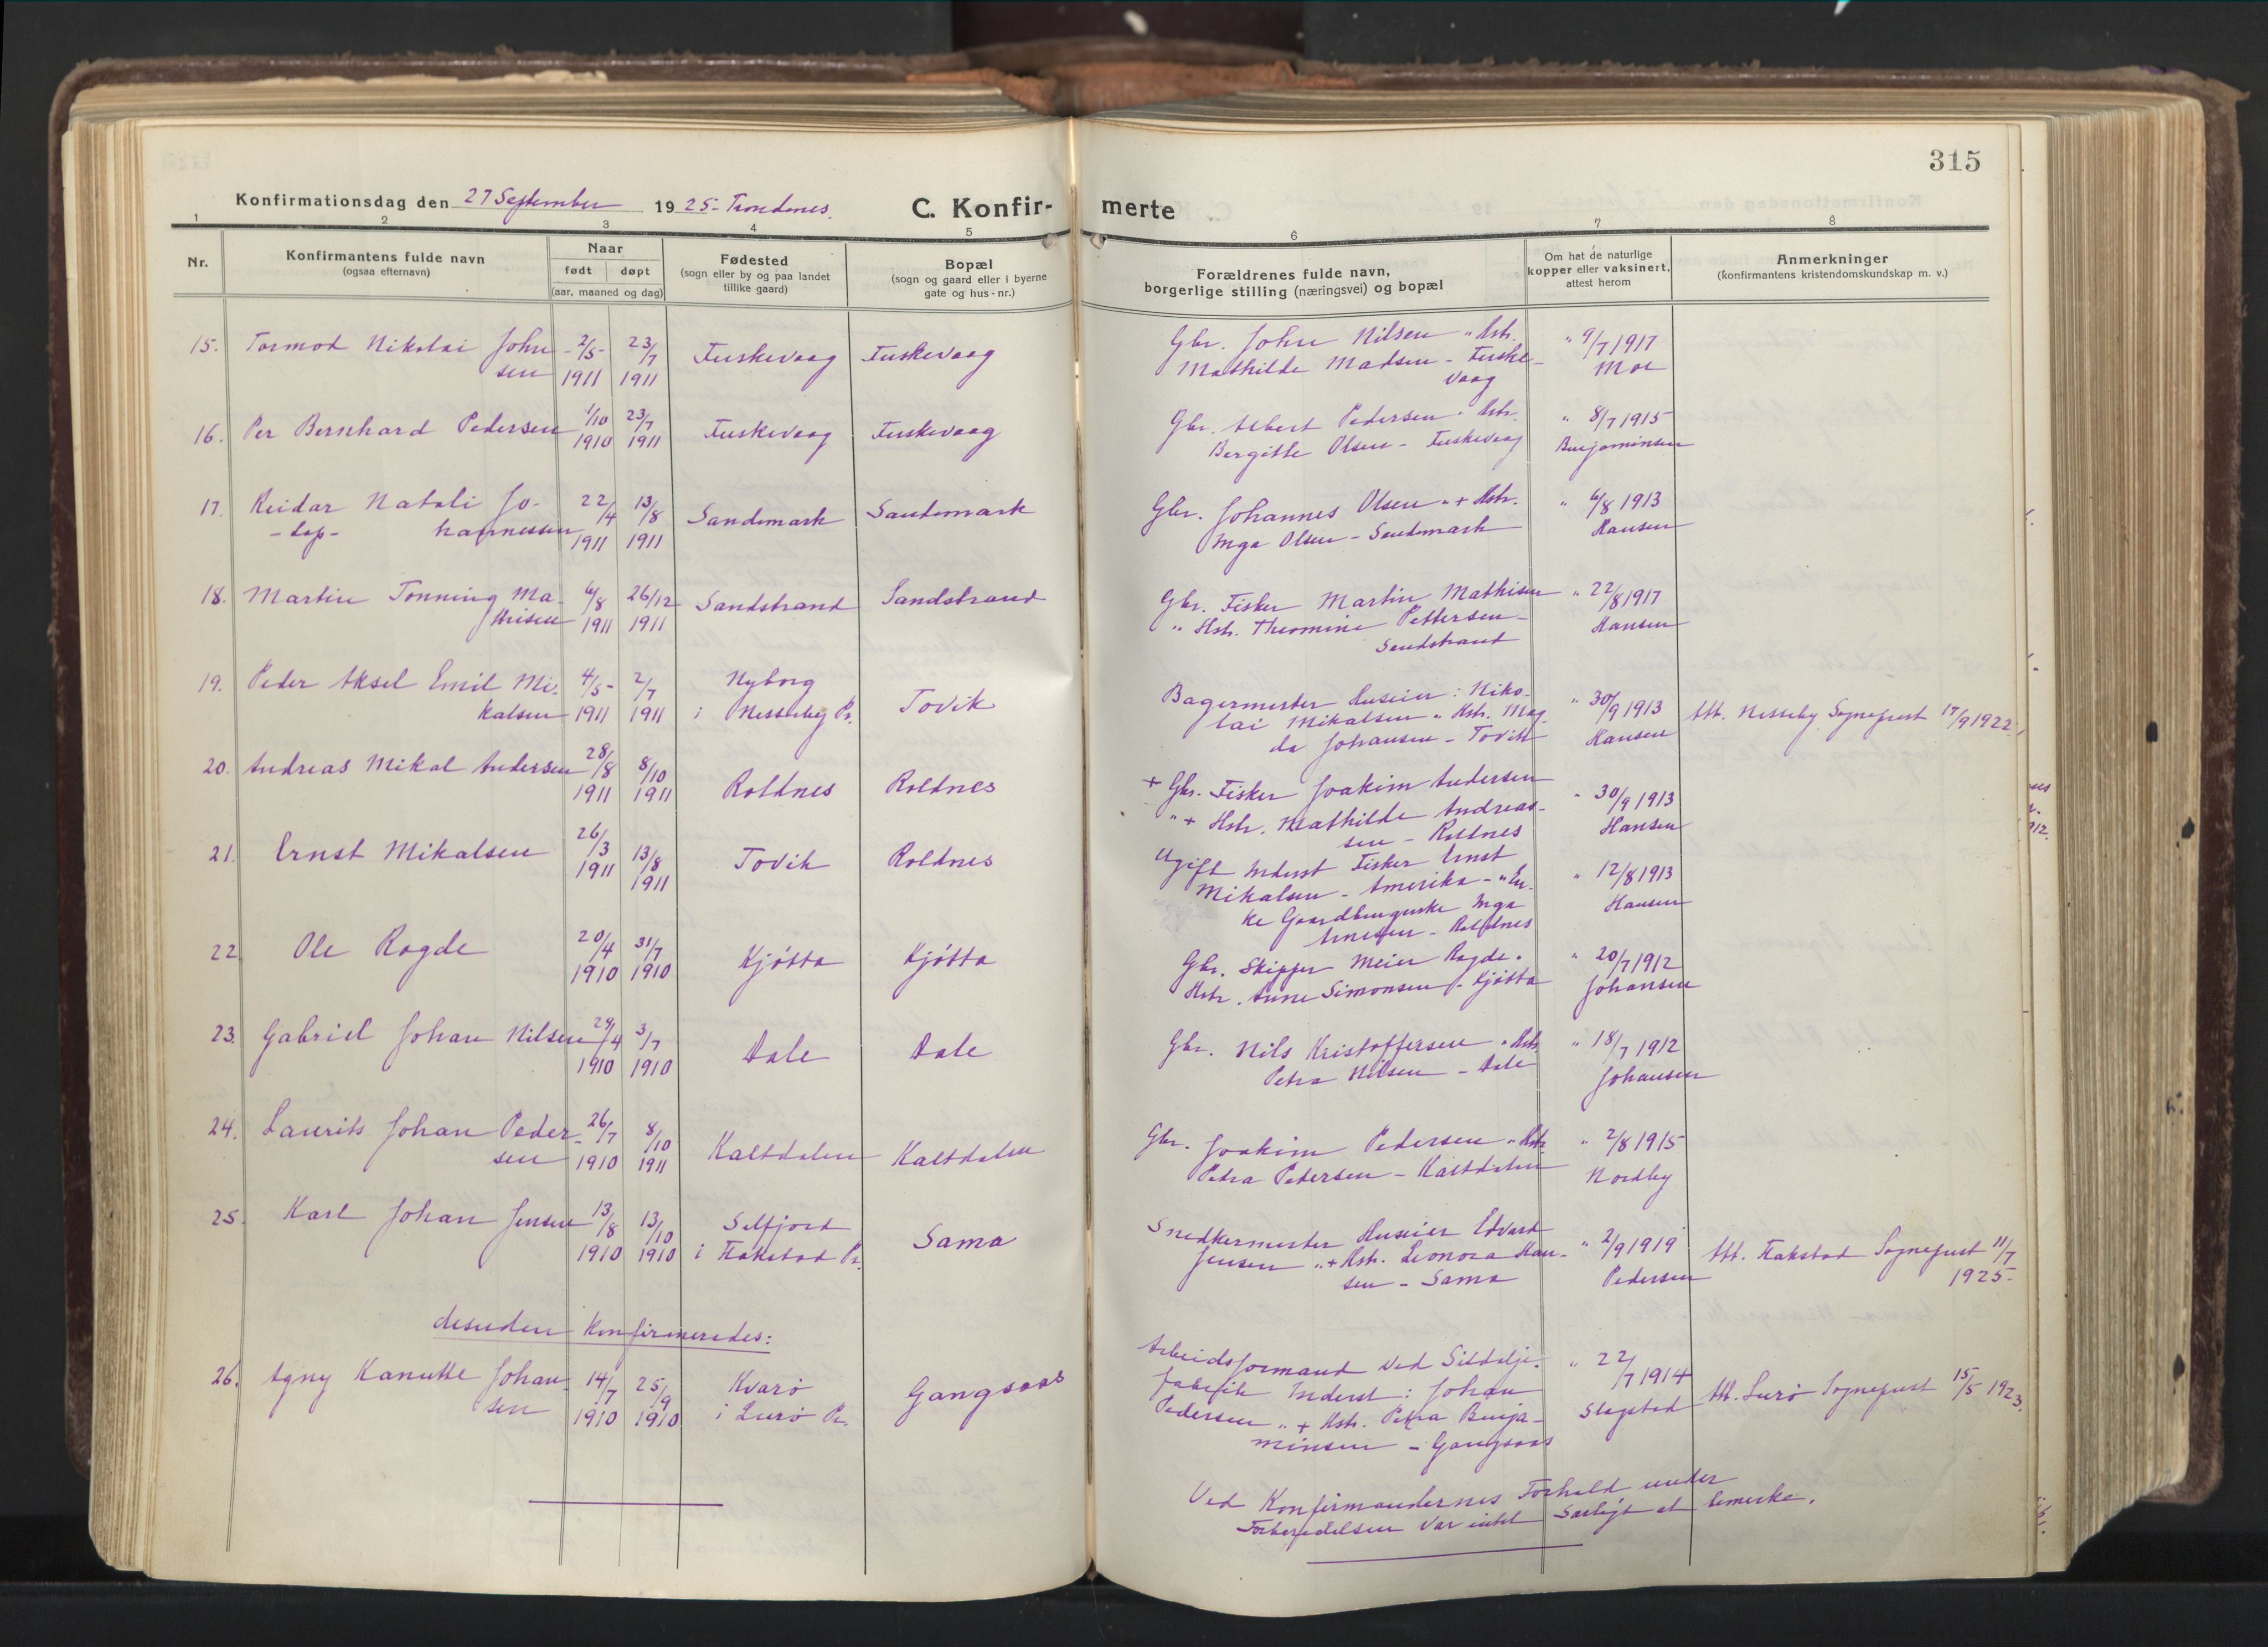 315
Konfirmationsdag den 27 September 1925 - Trondenes.
C. Konfir-merte
1 2 3 4 5 6 7 8
Nr.
Konfirmantens fulde navn
(ogsaa efternavn)
Naar
født døpt
(aar, maaned og dag)
Fødested
(sogn eller by og paa landet
tillike gaard)
Bopæl
(sogn og gaard eller i byerne
gate og hus-nr.)
Forældrenes fulde navn,
borgerlige stilling (næringsvei) og bopæl
Om hat de naturlige
kopper eller vaksinert,
attest herom
Anmerkninger
(konfirmantens kristendomskundskap m. v.)
15. Tormod Nikolai John 2/5- 23/7 Fuskevaag Fuskevaag Gbr. John Nilsen " Hstr. " 9/7 1917
sen 1911 1911 Mathilde Madsen - Fuske- Moe
vaag
16. Per Bernhard Pedersen 1/10 23/7 Fuskevaag Fuskevaag Gbr. Albert Pedersen " Hstr. " 8/7 1915
1910 1911 Bergitte Olsen - Fuskevaag Benjaminsen
17. Reidar Natali Jo- 22/4 13/8 Sandemark Sandemark Gbr. Johannes Olsen " + Hstr. " 6/8 1913
- lap - hannessen 1911 1911 Inga Olsen - Sandemark Hansen
18. Martin Tønning Ma- 6/8 26/12 Sandstrand Sandstrand Gbr. Fisker Martin Mathisen " 22/8 1917
thisen 1911 1911 " Hstr. Theomine Pettersen - Hansen
Sandstrand
19. Peder Aksel Emil Mi- 4/5- 2/7 Nyborg Tovik Bagermester Huseier: Niko- " 30/9 1913
kalsen 1911 1911 i Nesseby Pr. lai Mikalsen " Hstr. Mag- Hansen Att. Nesseby Sogneprest 17/9 1922.
da Johansen - Tovik
20. Andreas Mikal Andersen 28/8 8/10 Roldnes Roldnes + Gbr. Fisker Joakim Andersen " 30/9 1913
1911 1911 " + Hstr. Mathilde Andreas- Hansen
sen - Roldnes
21. Ernst Mikalsen 26/3 13/8 Tovik Roldnes Ugift Inderst Fisker Ernst " 12/8 1913
1911 1911 Mikalsen - Amerika - " En- Hansen
ke Gaardbrugerske Inga
Arnesen - Roldnes
22. Ole Rogde 20/4 31/7 Kjøtta Kjøtta Gbr. Skipper Meier Rogde " " 20/7 1912
1910 1910 Hstr. Anne Simonsen - Kjøtta Johansen
23. Gabriel Johan Nilsen 29/4 3/7 Dale Dale Gbr. Nils Kristoffersen " Hstr. " 18/7 1912
1910 1910 Petra Nilsen - Dale Johansen
24. Laurits Johan Peder- 26/7 8/10 Kaltdalen Kaltdalen Gbr. Joakim Pedersen " Hstr. " 2/8 1915
sen 1910 1911 Petra Pedersen - Kaltdalen Nordby
25. Karl Johan Jensen 13/8 13/10 Selfjord Sama Snedkermester Huseier Edvard " 2/9 1919
1910 1910 i Flakstad Pr. Jensen " + Hstr. Leonora Han- Pedersen Att. Flakstad Sogneprest 11/7
sen - Sama 1925.
desuden konfirmeredes:
26. Agny Kanutte Johan- 14/7 25/9 Kvarø Gangsaas Arbeidsformand ved Sildolje- " 22/7 1914
sen 1910 1910 i Lurø Pr. fabrik Inderst: Johan Slagstad Att. Lurø Sogneprest 15/5 1923.
Pedersen " + Hstr. Petra Benja-
minsen - Gangsaas
Ved Konfirmandernes Forhold under
Forberedelsen var intet særligt at bemerke.